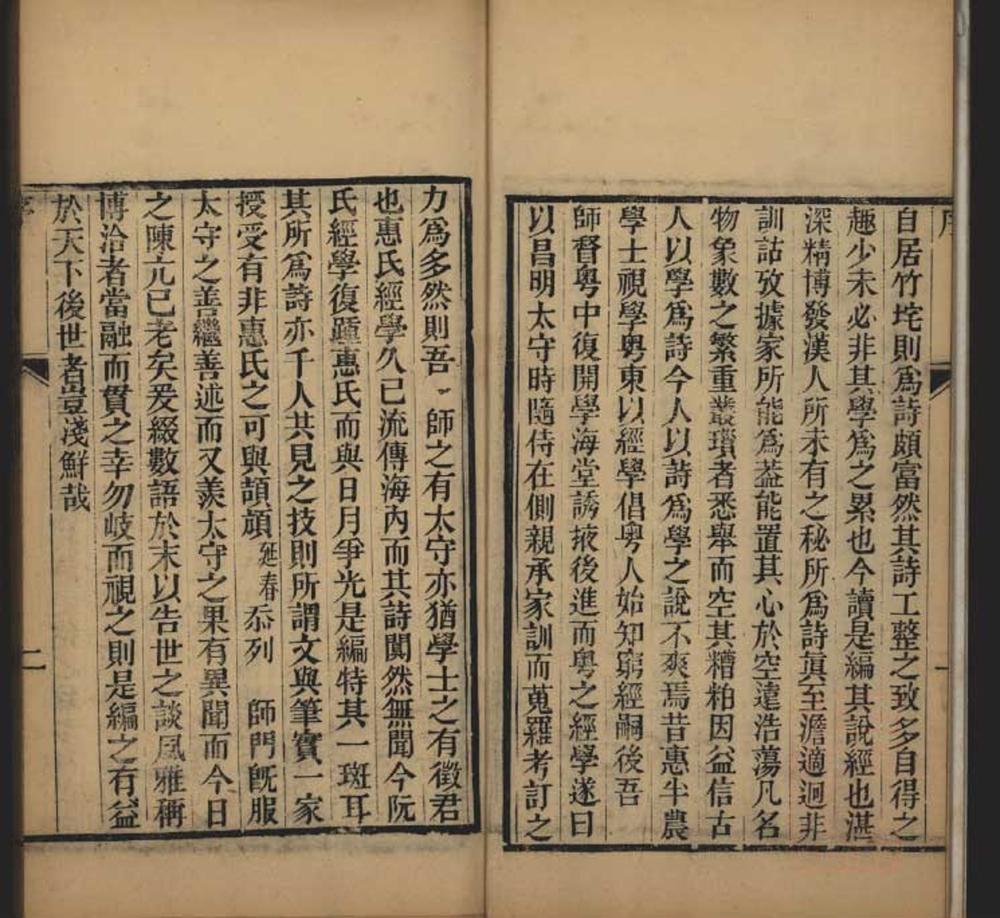 自居竹垞則爲詩頗富然其詩工整之致多自得之
趣少未必非其學爲之累也今讀是編其說經也湛
深精博發漢人所未有之秘所爲詩眞至澹適迥非
訓詁攷據家所能爲葢能置其心於空遠浩蕩凡名
物象數之繁重叢瑣者悉舉而空其糟粕因益信古
人以學爲詩今人以詩爲學之說不爽焉昔惠半農
學士視學粵東以經學倡粵人始知窮經嗣後吾
師督粵中復開學海堂誘掖後進而粵之經學遂日
以昌明太守時隨侍在側親承家訓而蒐羅考訂之
力爲多然則吾 師之有太守亦猶學士之有徵君
也惠氏經學久已流傳海內而其詩闃然無聞今阮
氏經學復踵惠氏而與日月爭光是編特其一斑耳
其所爲詩亦千人共見之技則所謂文與筆實一家
授受有非惠氏之可與頡頏延春忝列 師門旣服
太守之善繼善述而又羨太守之果有異聞而今日
之陳亢已老矣爰綴數語於末以告世之談風雅稱
博洽者當融而貫之幸勿岐而視之則是編之有益
於天下後世者豈淺鮮哉
二